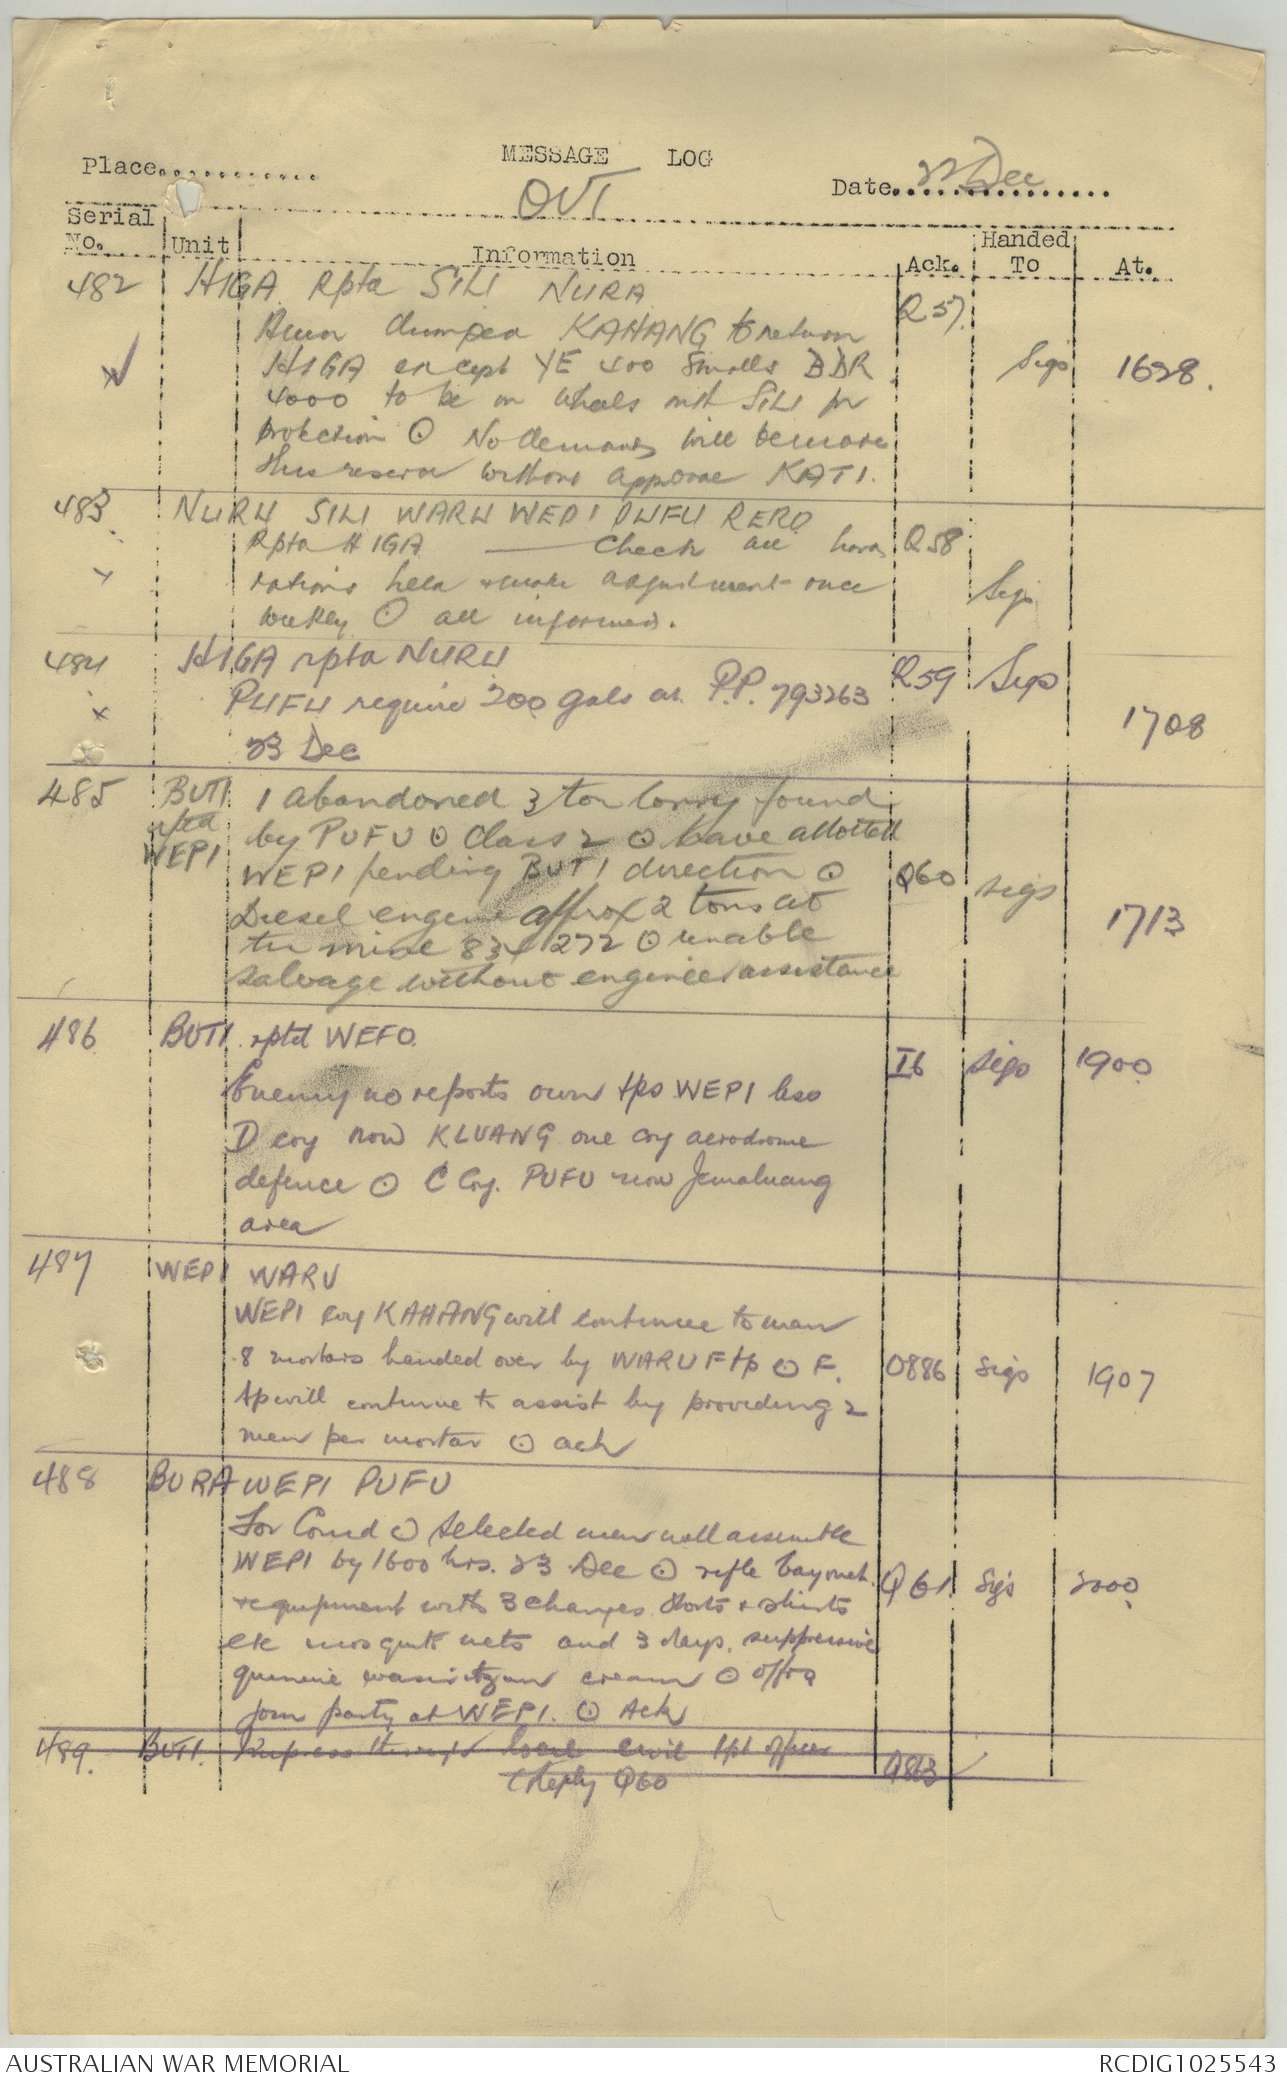 MESSAGE LOG
Place............
OUT
Date 22 Dec
Serial No.
Unit
Information
Ack.
Handed To
At.
482 HIGA Rpta SILI NURA
Q57.
Amn dumped KAHANG to return
HIGA except YE 400 smalls BDR
Sigs 1628.
4000 to be on wheels with SILI for
protection ⊙ No demands will be made
this reserve without approve KATI.
483 NURU SILI WARU WEPI PUFU RERO
Rpta HIGA — Check all hard Q58
rations held & make adjustment once
Sigs
weekly ⊙ all informed.
484 HIGA rpta NURU
Q59 Sigs
PUFU require 200 gals at P.P. 793263
1708
23 Dec
485 BUTI 1 abandoned 3 ton lorry found
rptd by PUFU ⊙ Class 2 ⊙ have allotted
WEPI WEPI pending BUTI direction ⊙
Q60 Sigs
Diesel engine approx 2 tons at
1713
tin mine 272 ⊙ unable
salvage without engineer assistance
486 BUTI rptd WEFO.
I6 Sigs 1900
Enemy no reports own tps WEPI less
D coy now KLUANG one coy aerodrome
defence ⊙ C Coy. PUFU now Jemaluang
area
487 WEPI WARU
WEPI coy KAHANG will continue to man
8 mortars handed over by WARU F tp ⊙ F.
O886 Sigs 1907
tp will continue to assist by providing 2
men per mortar ⊙ ack
488 BURA WEPI PUFU
For Comd ⊙ Selected men will assemble
WEPI by 1600 hrs. 23 Dec ⊙ rifle bayonet
Q61 Sigs 2000
& equipment with 3 changes shorts & shirts
etc mosquito nets and 3 days. suppressive
quinine cream ⊙
join party at WEPI. ⊙ Ack
489. BUTI. Impress through local civil tpt officer
(Reply Q60
AUSTRALIAN WAR MEMORIAL
RCDIG1025543